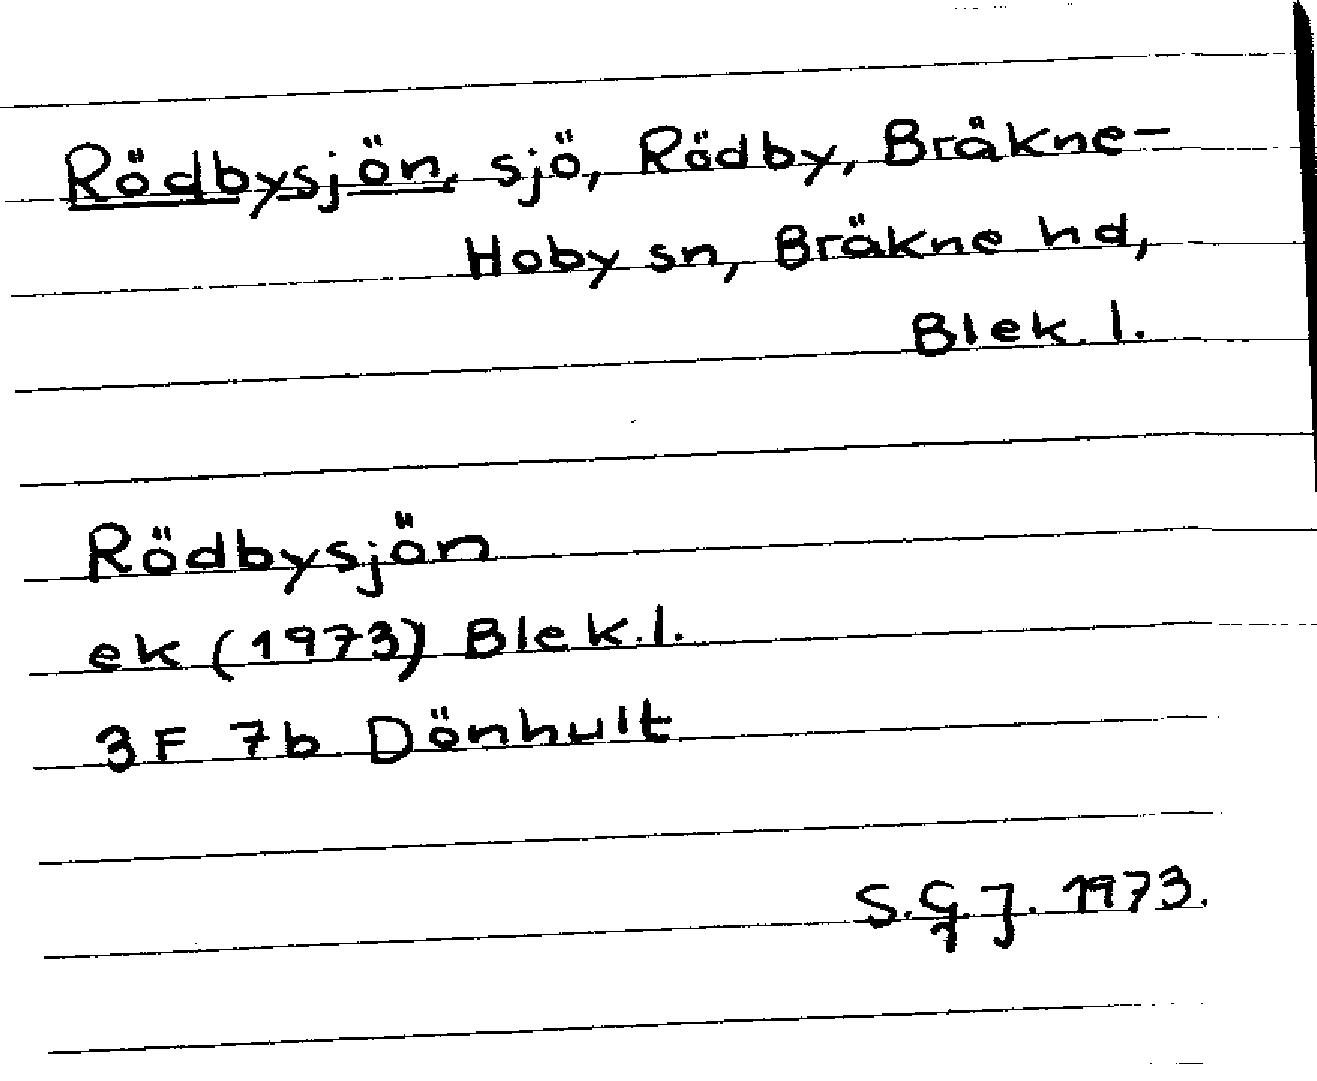 Rödbysjön, sjö, Rödby, Bräkne-
Hoby sn, Bräkne hd,
Blek. l.
Rödbysjön
ek (1973) Blek. l.
3F 7b Dönhult
S.G.J. 1973.